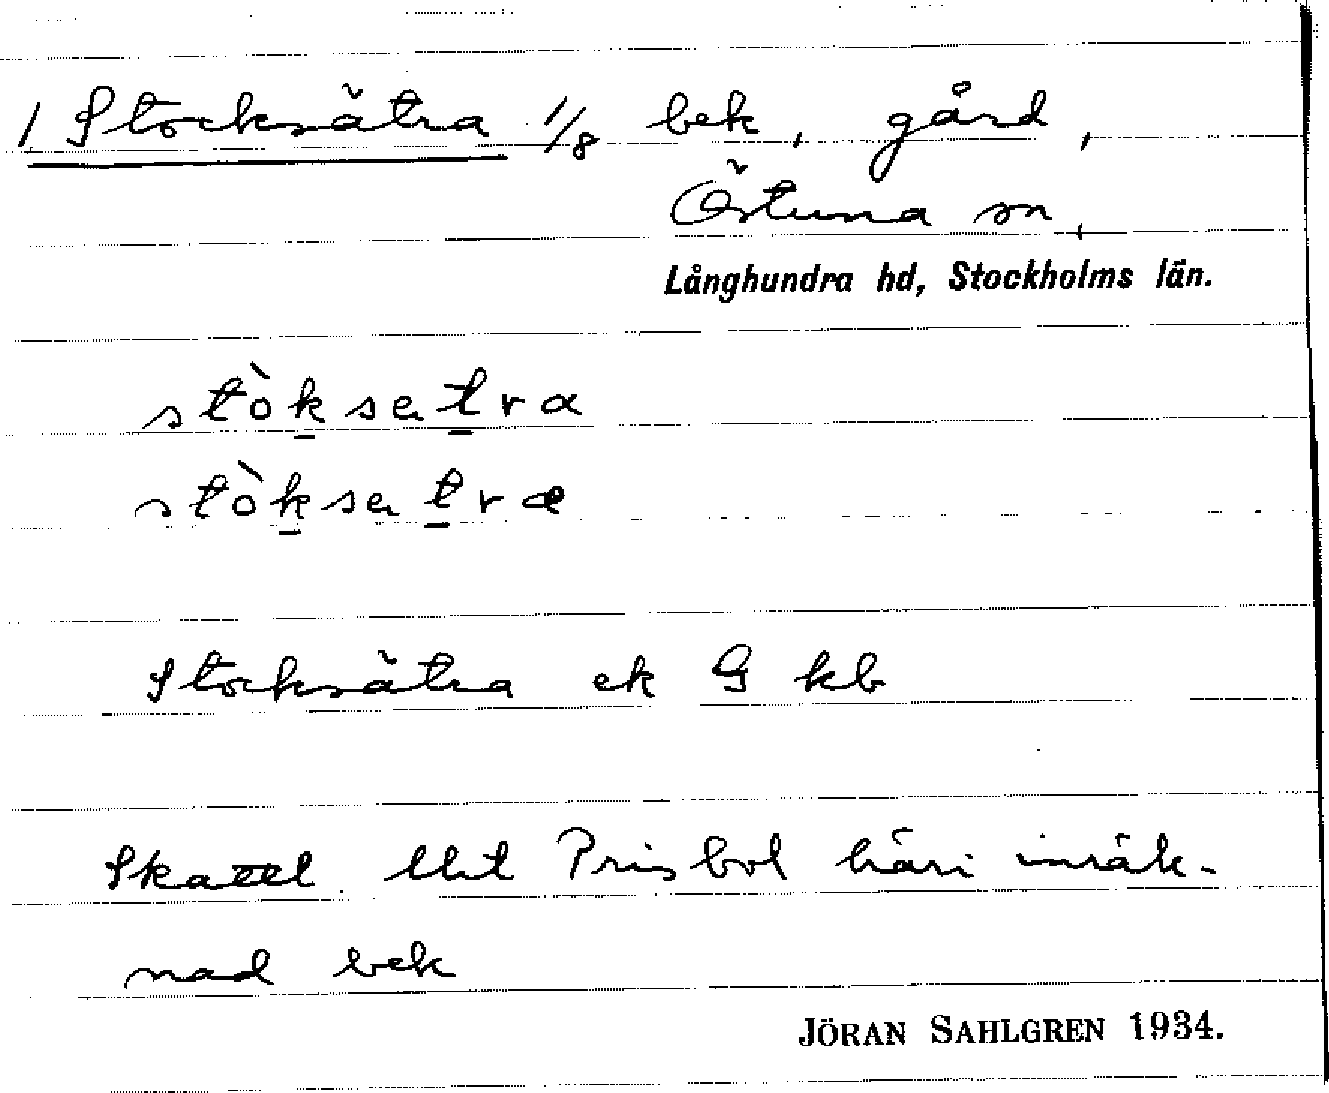 1 Stocksätra 1/8 bek, gård,
Östuna sn,
Långhundra hd, Stockholms län.
stòksatra
stòksatræ
Stocksätra ek G kb
Skattel. Prisbol häri inräk-
nad bek
JÖRAN SAHLGREN 1934.